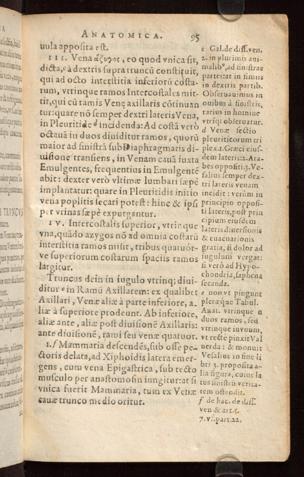 ANATOMICA. 95
uula apposita est.
III. Vena ἄζυγος, eo quod vnica sit,
dicta, è à dextris supra truncũ constituit,
qui ad octo interstitia inferiorũ costa-
rum, vtrinque ramos Intercostales mit-
tit, qui cũ ramis Venę axillaris cõtinuan
tur: quare nõ semper dextri lateris Vena,
in Pleuritide incidenda: Ad costã verò
octauã in duos diuiditur ramos, quorũ
maior ad sinistrã sub Diaphragmatis di-
uisione transiens, in Venam cauã iuxta
Emulgentes, frequentius in Emulgentẽ
abit: dexter verò vltimę lumbari sępè
implantatur: quare in Pleuritidis initio
vena poplitis secari potest: hinc & ipsi
per vrinas sępè expurgantur.
IV. Intercostalis superior, vtrinque
vna, quãdo azygos nõ ad omnia costarũ
interstitia ramos mittit, tribus quatuór-
ve superiorum costarum spaciis ramos
largitur.
Truncus dein in iugulo vtrinq; diui-
ditur in Ramũ Axillarem: ex qualibet
Axillari, Venæ aliæ à parte inferiore, a-
liæ à superiore prodeunt. Ab inferiore,
aliæ ante, aliæ post diuisionẽ Axillaris:
ante diuisionẽ, rami seu venæ quatuor.
1. Mammaria descendẽs, sub osse pe-
ctoris delata, ad Xiphoidis latera emer-
gens, cum vena Epigastrica, sub recto
musculo per anastomosin iungitur: at si
vnica fuerit Mammaria, tum ex Venæ
cauæ trunco medio oritur.
c Gal. de diss. ven.
2. in plurimis ani-
malib⁹, ad sinistrã
partem
in dextris partib.
Obseruauimus in
ouibus à sinistris,
rarius in homine
vtrinq; obseruatur.
d Venæ sectio
pleuriticorum tri
plex a. Græci eius-
dem lateris a. Ara-
bes oppositi 3. Ve-
salius semper dex-
tri lateris venam
incidit: verùm in
principio opposi-
ti lateris, post prin
cipium eiusdem
lateris diuersionis
& euacuationis
gratia, si dolor ad
iugulum vergat:
si verò ad Hypo-
chondria, saphena
secanda.
e non vt pingunt
pleræque Tabul.
Axat. vtrinque a
duos ramos, seu
vtrinque vnum,
vt rectè pinxit Val
uerda: & monuit
Vesalius in fine li
bri 3. proposita a-
lia figura, cuius la
tus sinistrũ verita-
tem ostendit.
f de hac. de diss.
ven & art. c.
7. vs. part. 22.